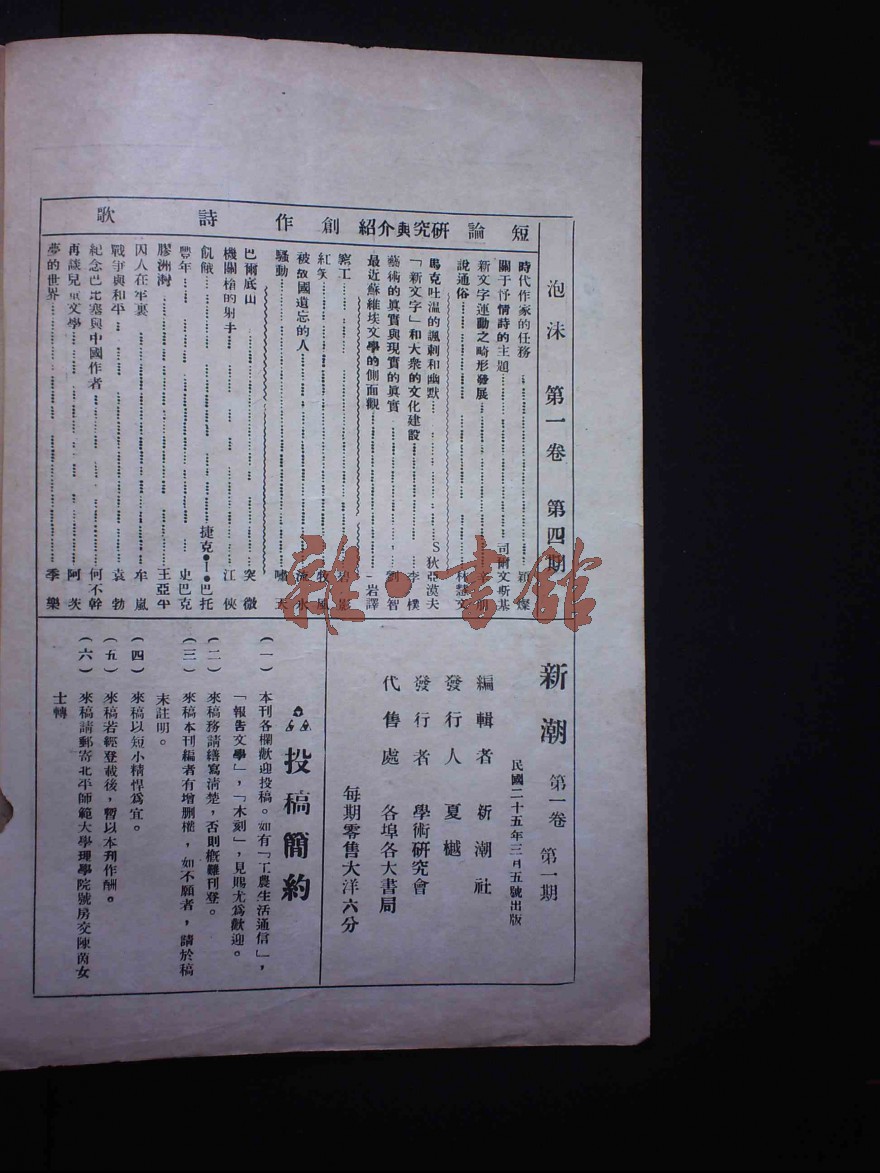 泡沫 第一卷 第四期
短論 研究與介紹 創作 詩歌
時代作家的任務……穎燦
關于抒情詩的主題……司爾文斯基
新文字運動之畸形發展……
說通俗……林慧文
馬克吐溫的諷刺和幽默……S 狄亞漠夫
「新文字」和大衆的文化建設……李樸
藝術的眞實與現實的眞實……劉智
最近蘇維埃文學的側面觀……岩譯
窰工……碧影
紅矢……牧風
被故國遺忘的人……流水
騷動……嘯天
巴爾底山……突微
機關槍的射手……江俠
飢餓……捷克·I·巴托
豐年……史巴克
膠洲灣……王亞平
囚人在牢裏……牟嵐
戰爭與和平……袁勃
紀念巴比塞與中國作者……何不幹
再談兒童文學……阿茨
夢的世界……季樂
新潮 第一卷 第一期
民國二十五年三月五號出版
編輯者 新潮社
發行人 夏樾
發行者 學術研究會
代售處 各埠各大書局
每期零售大洋六分
投稿簡約
(一) 本刊各欄歡迎投稿。如有「工農生活通信」，
「報告文學」，「木刻」，見賜尤爲歡迎。
(二) 來稿務請繕寫淸楚，否則概難刊登。
(三) 來稿本刊編者有增删權，如不願者，請於稿
末註明。
(四) 來稿以短小精悍爲宜。
(五) 來稿若經登載後，暫以本刊作酬。
(六) 來稿請郵寄北平師範大學理學院號房交陳茵女
士轉
雜·書館